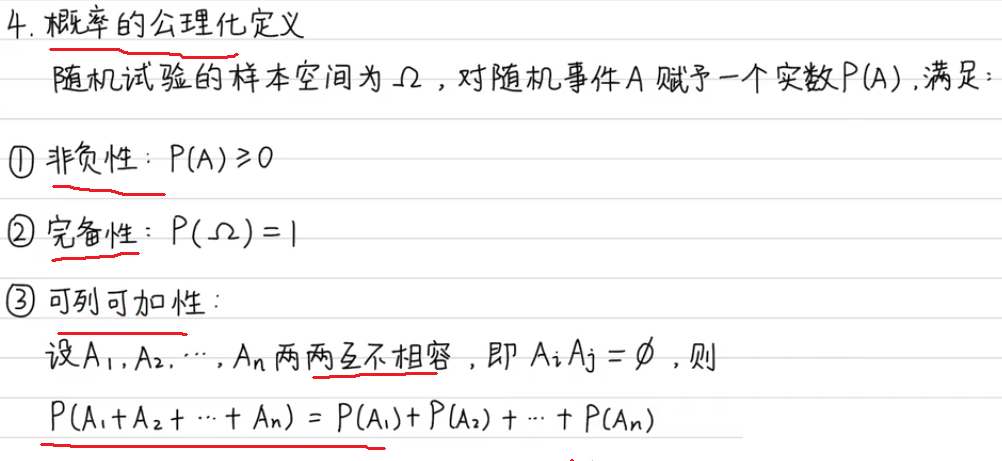 4. 概率的公理化定义
随机试验的样本空间为Ω,对随机事件A赋予一个实数P(A),满足:
① 非负性: P(A)≥0
② 完备性: P(Ω)=1
③ 可列可加性:
设A₁,A₂,…,Aₙ两两互不相容,即 AᵢAⱼ=∅,则
P(A₁+A₂+…+Aₙ)=P(A₁)+P(A₂)+…+P(Aₙ)